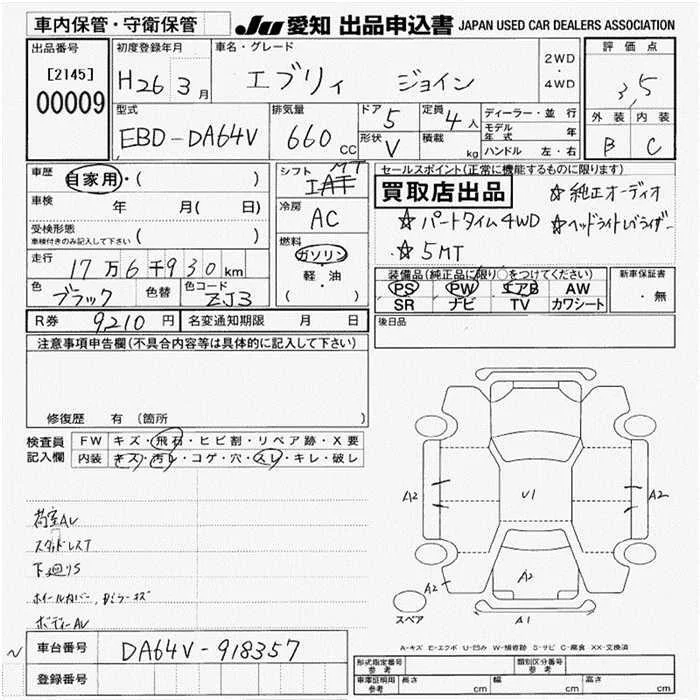 車内保管・守衛保管
JU 愛知 出品申込書 JAPAN USED CAR DEALERS ASSOCIATION
出品番号
[2145]
00009
初度登録年月
H26 3月
車名・グレード
エブリィ ジョイン
2WD
・
4WD
評価点
3.5
外装 内装
B C
型式
EBD-DA64V
排気量
660 cc
ドア 5
形状 V
定員 4人
積載 kg
ディーラー・並行
モデル年式 年
ハンドル 左・右
車歴
自家用・( )
車検 年 月( 日)
受検形態
車検付きのみ記入して下さい ( )
走行 17万6千930km
色 ブラック 色替 色コード ZJ3
R券 9210円 名変通知期限 月 日
シフト MT
IAT
冷房
AC
燃料
ガソリン
軽・油
( )
セールスポイント(正常に機能するものに限ります)
買取店出品 ☆純正オーディオ
☆パートタイム4WD ☆ヘッドライトレベライザー
☆5MT
装備品(純正品に限り○をつけてください)
PS PW エアB AW
SR ナビ TV カワシート
新車保証書
・無
後日品
注意事項申告欄(不具合内容等は具体的に記入して下さい)
修復歴 有 (箇所 )
検査員記入欄
FW キズ・飛石・ヒビ割・リペア跡・X要
内装 キズ・汚レ・コゲ・穴・スレ・キレ・破レ
荷室AU
スタッドレスT
下回りS
ホイールカバー,
ボディーAU
A2
U1
A2
A2
A2
A1
スペア
A-キズ E-エクボ U-凹み W-補修跡 S-サビ C-腐食 XX-交換済
車台番号 DA64V-918357
登録番号
形式指定番号 参考
類別区分番号 参考
車庫証明用 参考 長さ cm 幅 cm 高さ cm